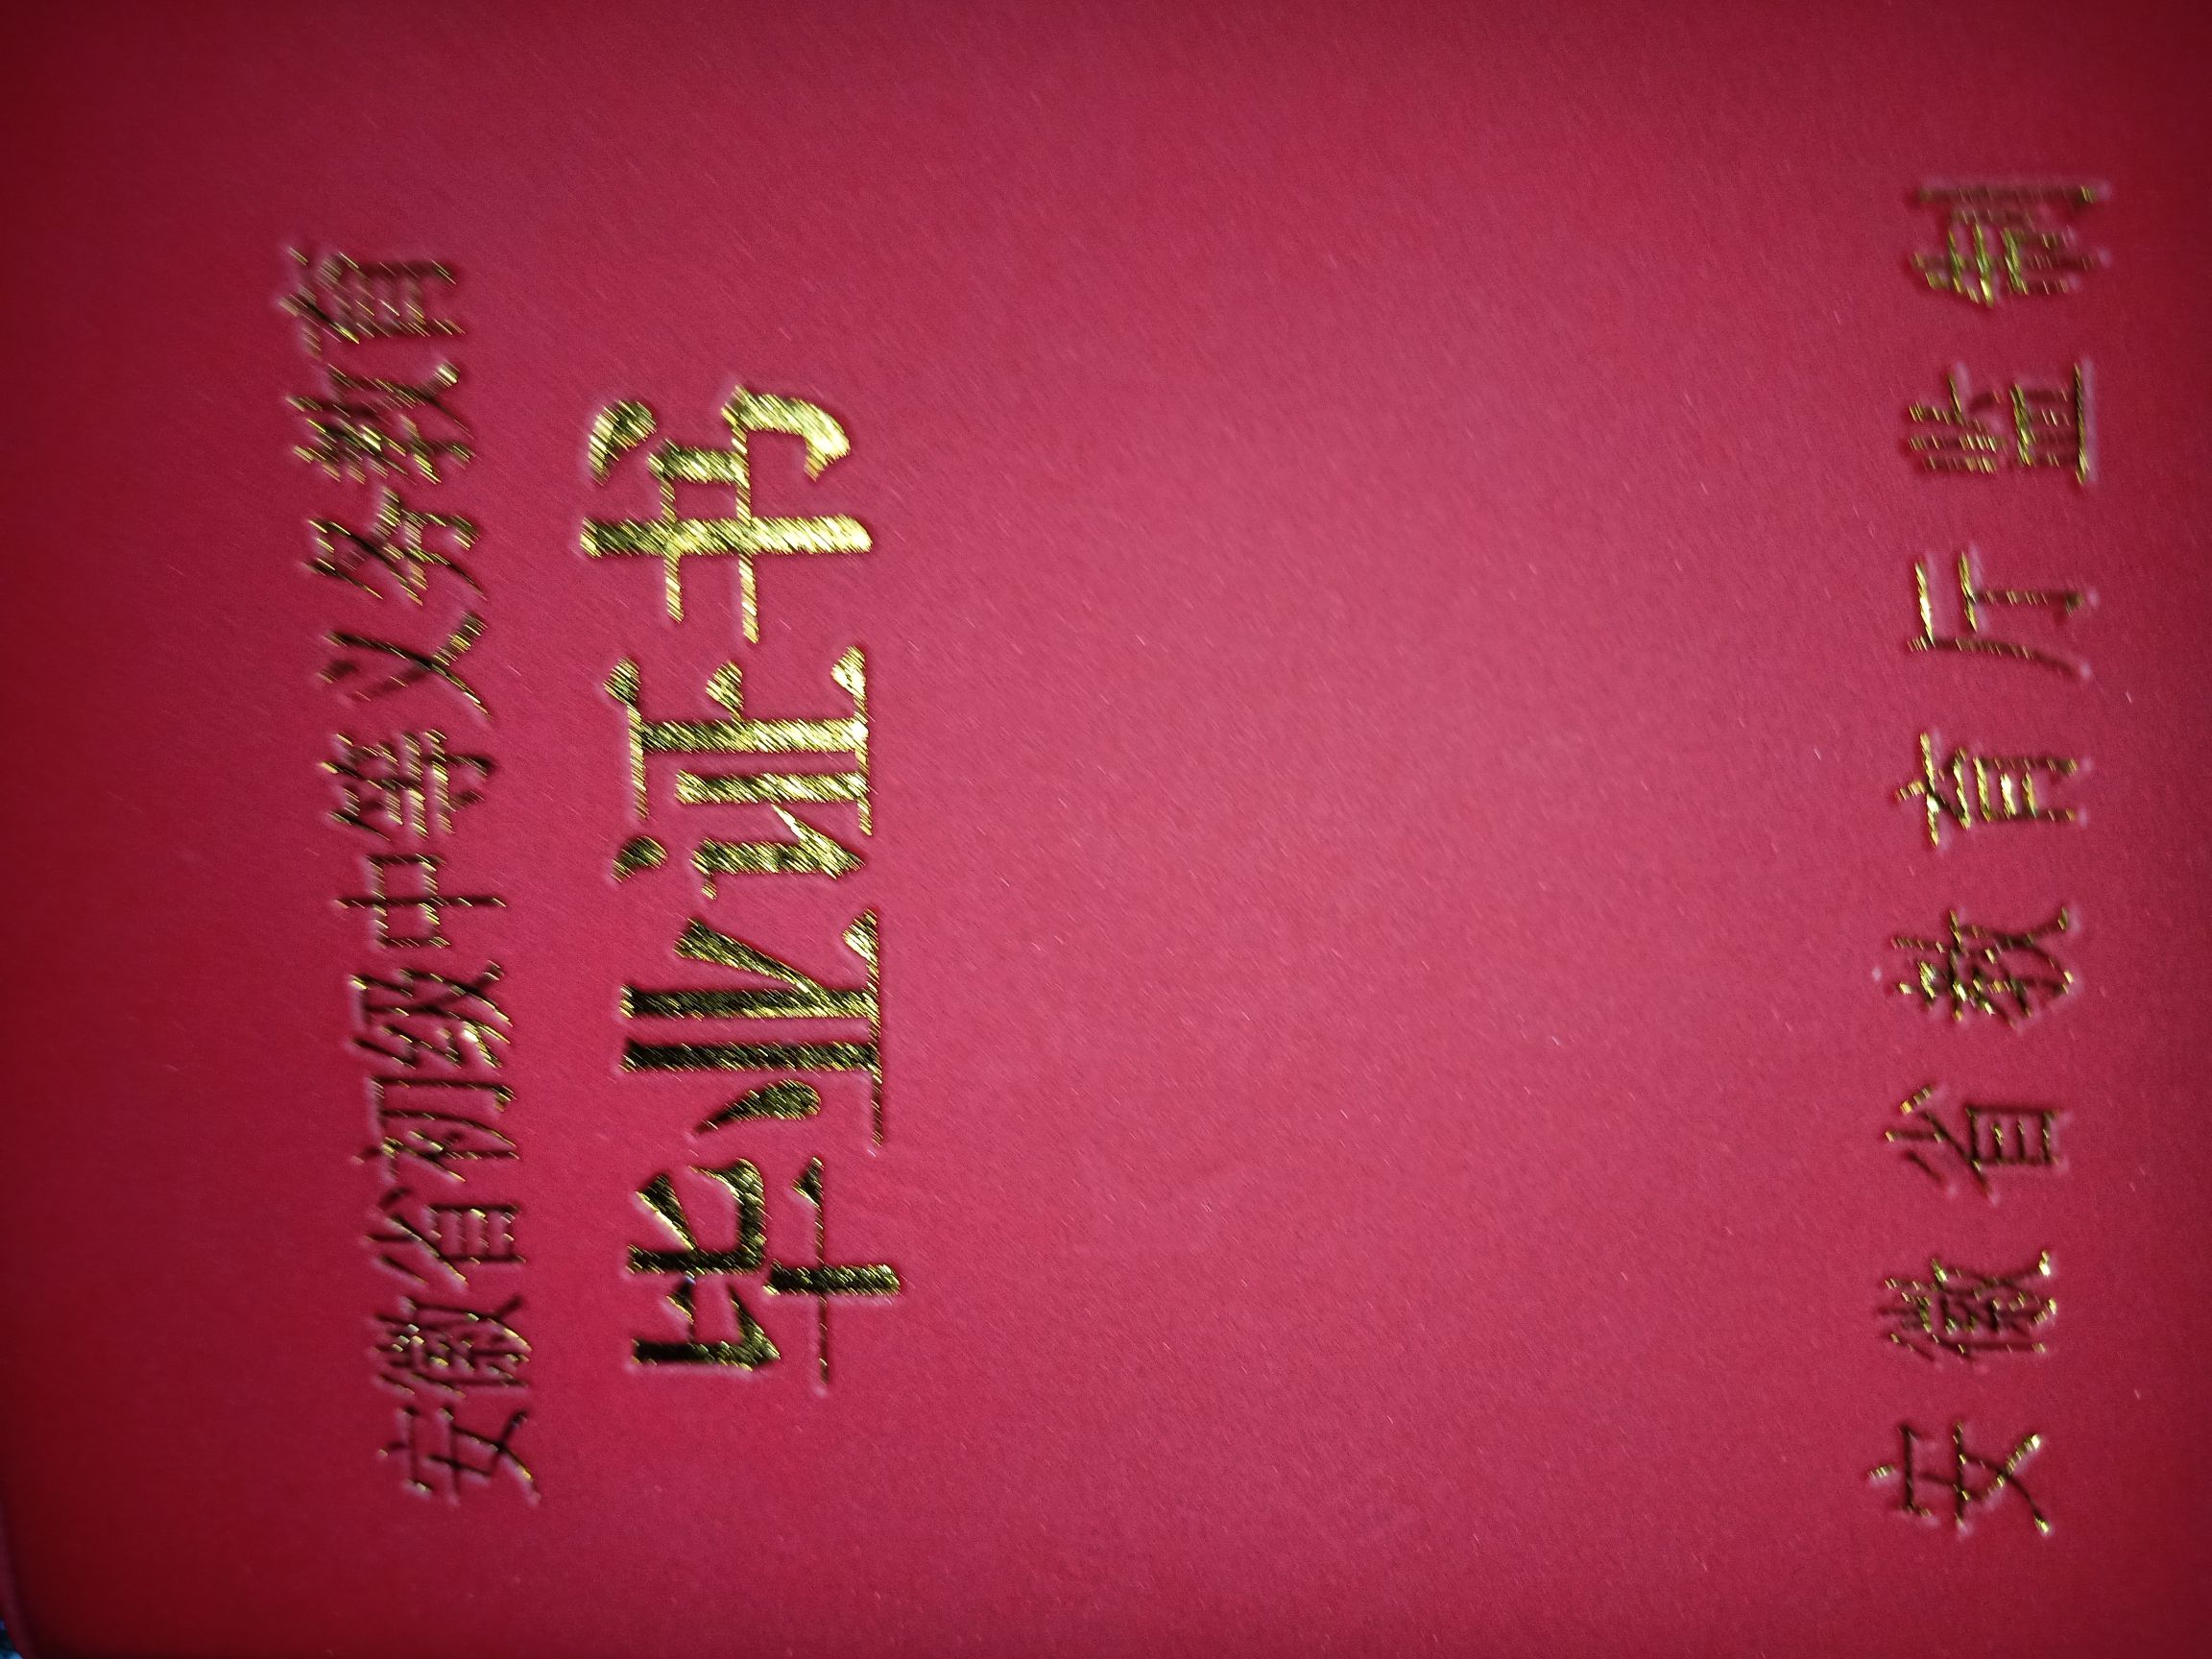 安徽省初级中等义务教育
毕业证书
安徽省教育厅监制